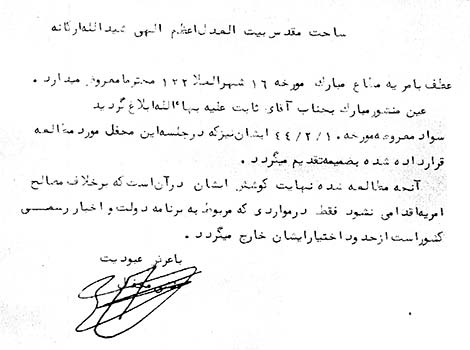 ساحت مقدس بیت العدل اعظم الهی شیدالله ارکانه
عطف بامریه مطاع مبارک مورخه ۱۶ شهرالعلا ۱۲۲ محترما معروض میدارد .
عین منشور مبارک بجناب آقای ثابت علیه بهاءالله ابلاغ گردید
سواد معروضه مورخه ۴۴/۲/۱۰ ایشان نیز که در جلسه این محفل مورد مطالعه
قرار داده شده بضمیمه تقدیم میگردد .
آنچه مطالعه شده نهایت کوشش ایشان در آن است که برخلاف مصالح
امریه اقدامی نشود فقط در مواردی که مربوط به برنامه دولت و اخبار رسمی
کشور است از حدود اختیار ایشان خارج میگردد .
با عرض عبودیت
منشی محفل